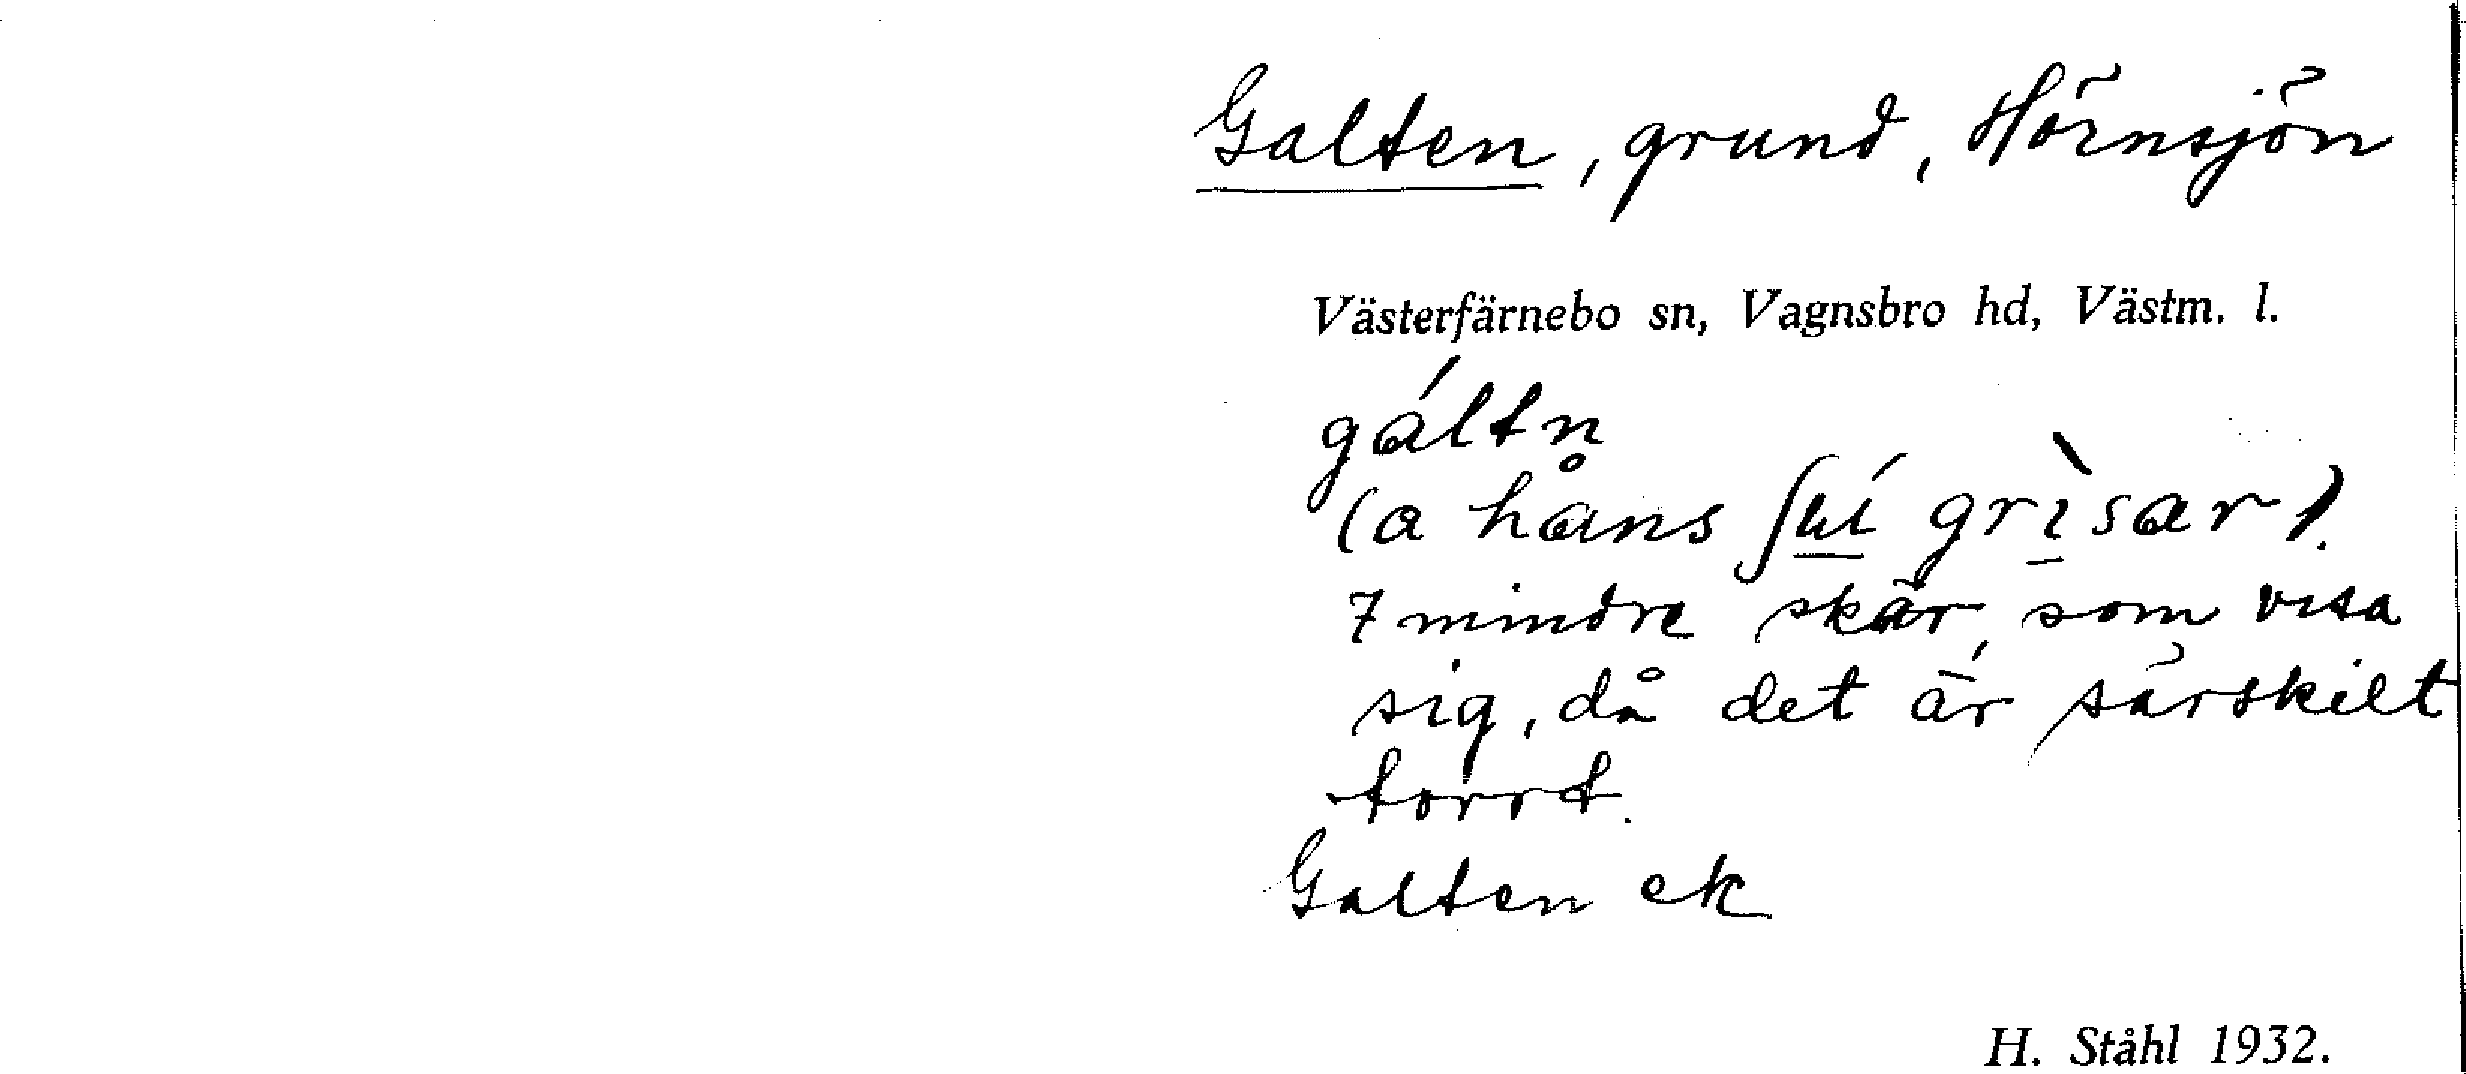 Galten, grund, Hörnsjön
Västerfärnebo sn, Vagnsbro hd, Västm. l.
gáltn
(a håns ʃu̲í̲ grì̲sar).
7 mindre skär, som visa
sig, då det är särskilt
torrt.
Galten ek
H. Ståhl 1932.